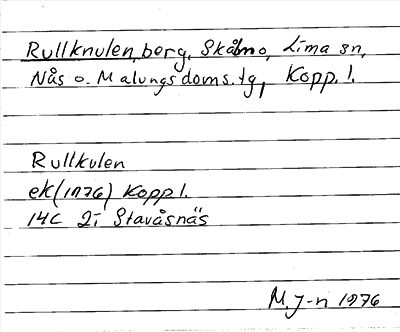 Rullknulen, berg, Skålmo, Lima sn,
Nås o. Malungs doms. tg, Kopp. l.
Rullkulen
ek (1976) Kopp l.
14C 2i Stavåsnäs
M J-n 1976